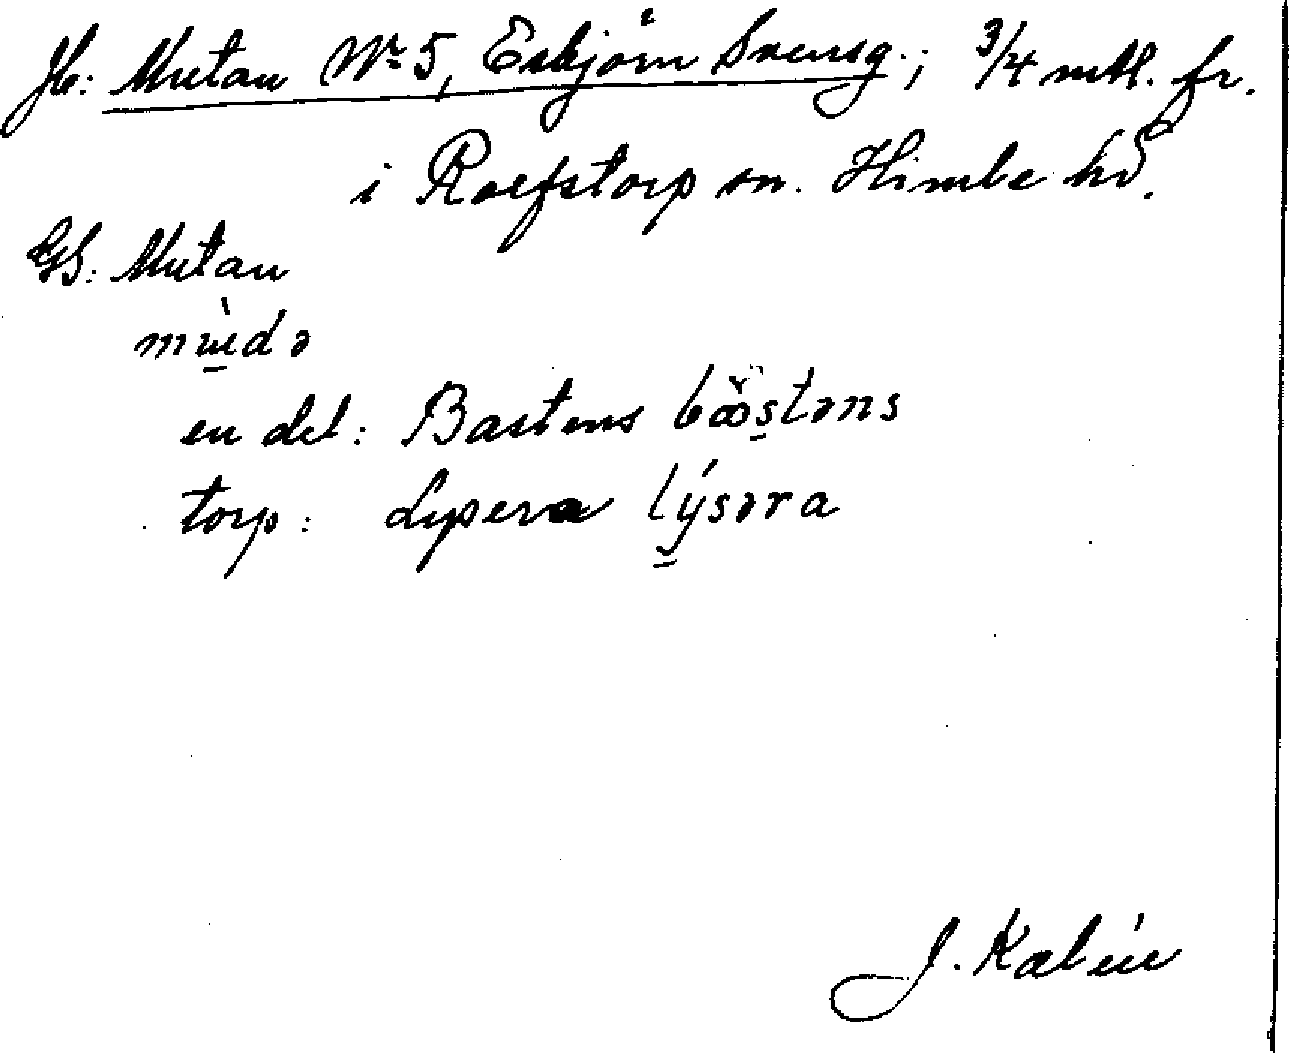 Jb: Mutan Nr 5, Esbjörn Svensg.; 3/4 mtl. fr.
i Rolfstorp sn. Himle hd.
GS: Mutan
mɯ̀də
en del: Bastens bast̀əns
torp: Lysera lýsəra
J. Kalén